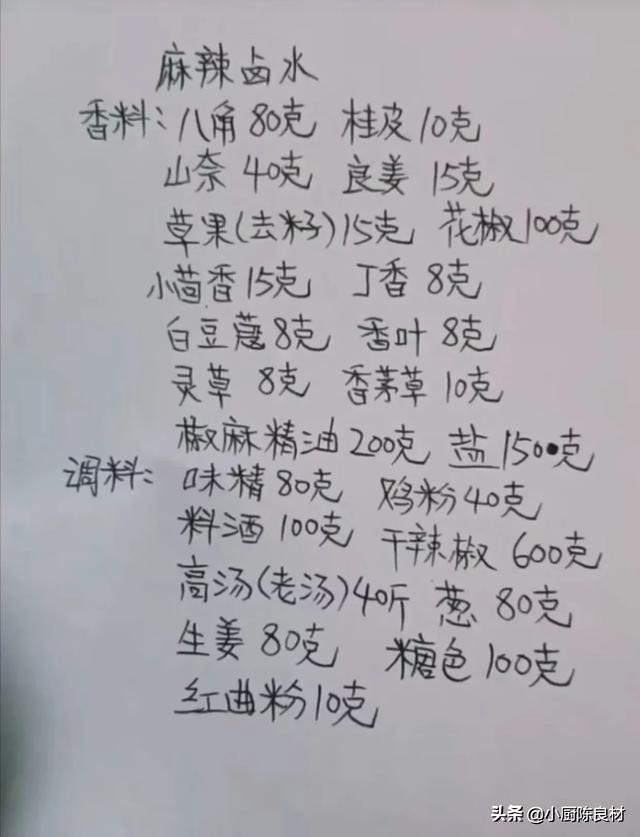 麻辣卤水
香料：八角80克 桂皮10克
山奈 40克 良姜 15克
草果(去籽)15克 花椒100克
小茴香15克 丁香 8克
白豆蔻8克 香叶 8克
灵草 8克 香茅草 10克
椒麻精油200克 盐150克
调料：味精80克 鸡粉40克
料酒100克 干辣椒 600克
高汤(老汤)40斤 葱 80克
生姜 80克 糖色100克
红曲粉10克
头条 @小厨陈良材